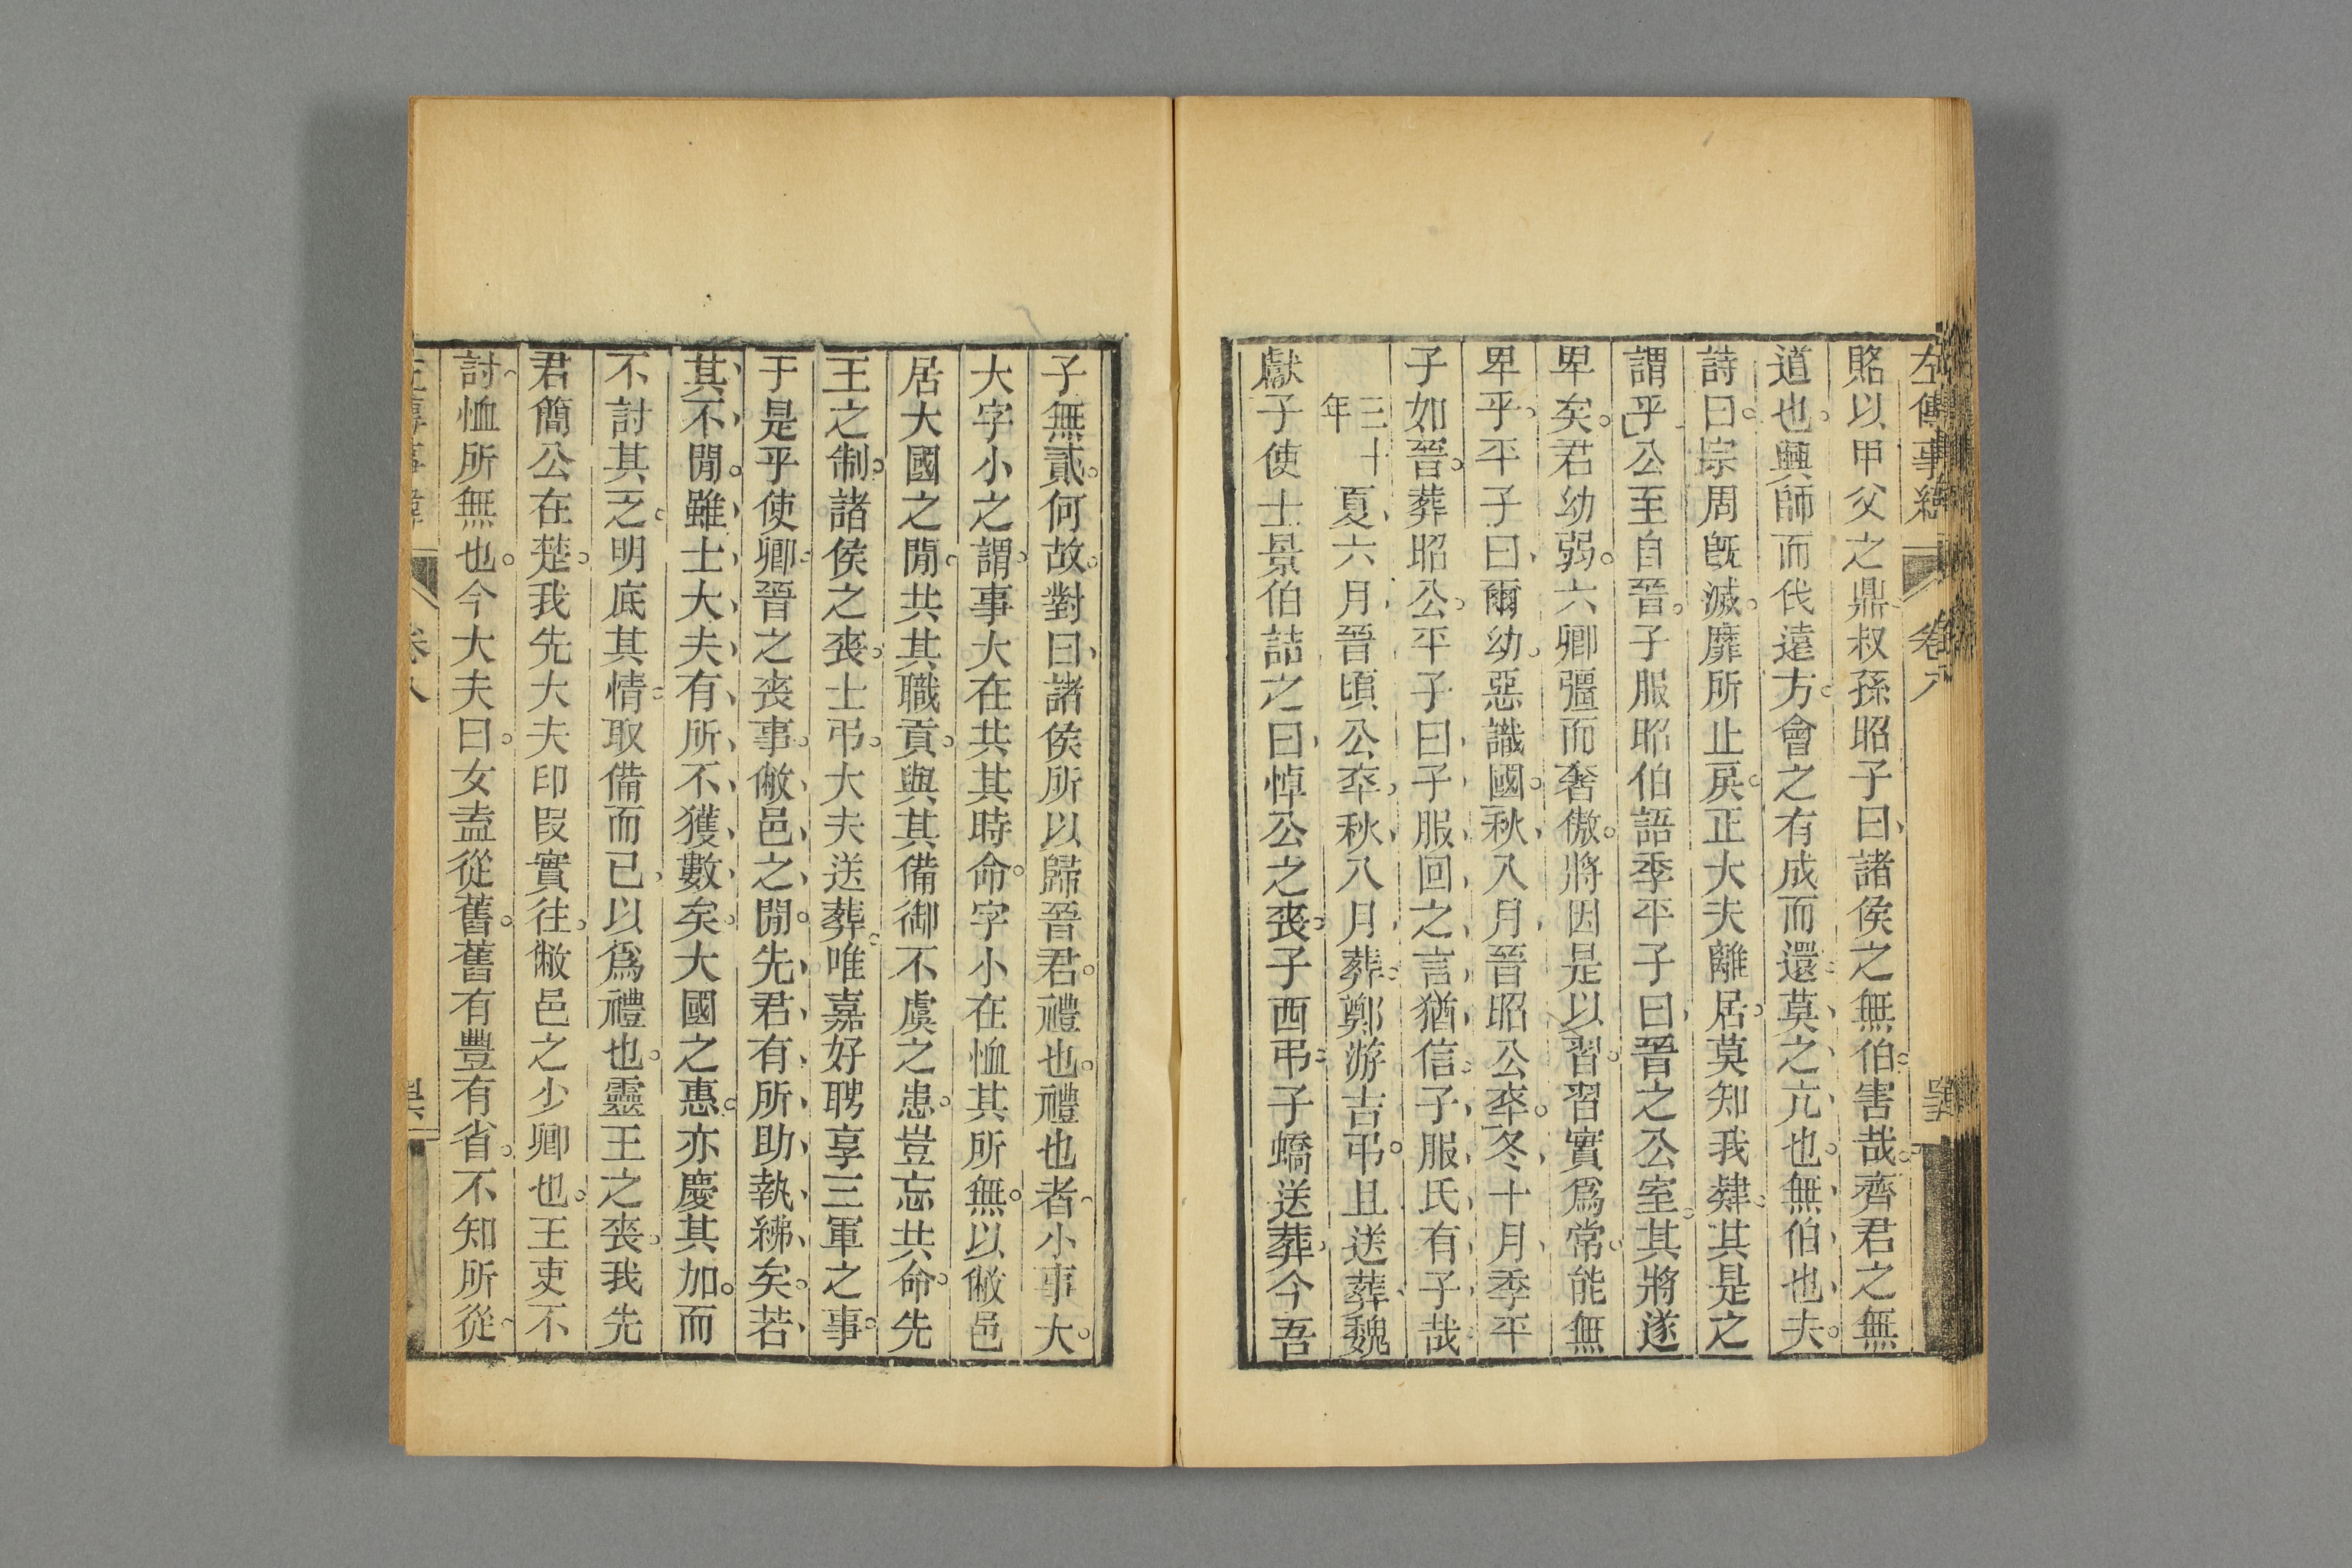 左傳事緯 卷八
賂以甲父之鼎叔孫昭子曰諸侯之無伯害哉齊君之無
道也興師而伐遠方會之有成而還莫之亢也無伯也夫
詩曰宗周旣滅靡所止戾正大夫離居莫知我肄其是之
謂乎公至自晉子服昭伯語季平子曰晉之公室其將遂
卑矣君幼弱六卿彊而奢傲將因是以習習實爲常能無
卑乎平子曰爾幼惡識國秋八月晉昭公卒冬十月季平
子如晉葬昭公平子曰子服回之言猶信子服氏有子哉
三十年夏六月晉頃公卒秋八月葬鄭游吉弔且送葬魏
獻子使士景伯詰之曰悼公之喪子西弔子蟜送葬今吾
子無貳何故對曰諸侯所以歸晉君禮也禮也者小事大
大字小之謂事大在共其時命字小在恤其所無以敝邑
居大國之閒共其職貢與其備御不虞之患豈忘共命先
王之制諸侯之喪士弔大夫送葬唯嘉好聘享三軍之事
于是乎使卿晉之喪事敝邑之閒先君有所助執紼矣若
其不閒雖士大夫有所不獲數矣大國之惠亦慶其加而
不討其乏明底其情取備而已以爲禮也靈王之喪我先
君簡公在楚我先大夫印段實往敝邑之少卿也王吏不
討恤所無也今大夫曰女盍從舊舊有豐有省不知所從